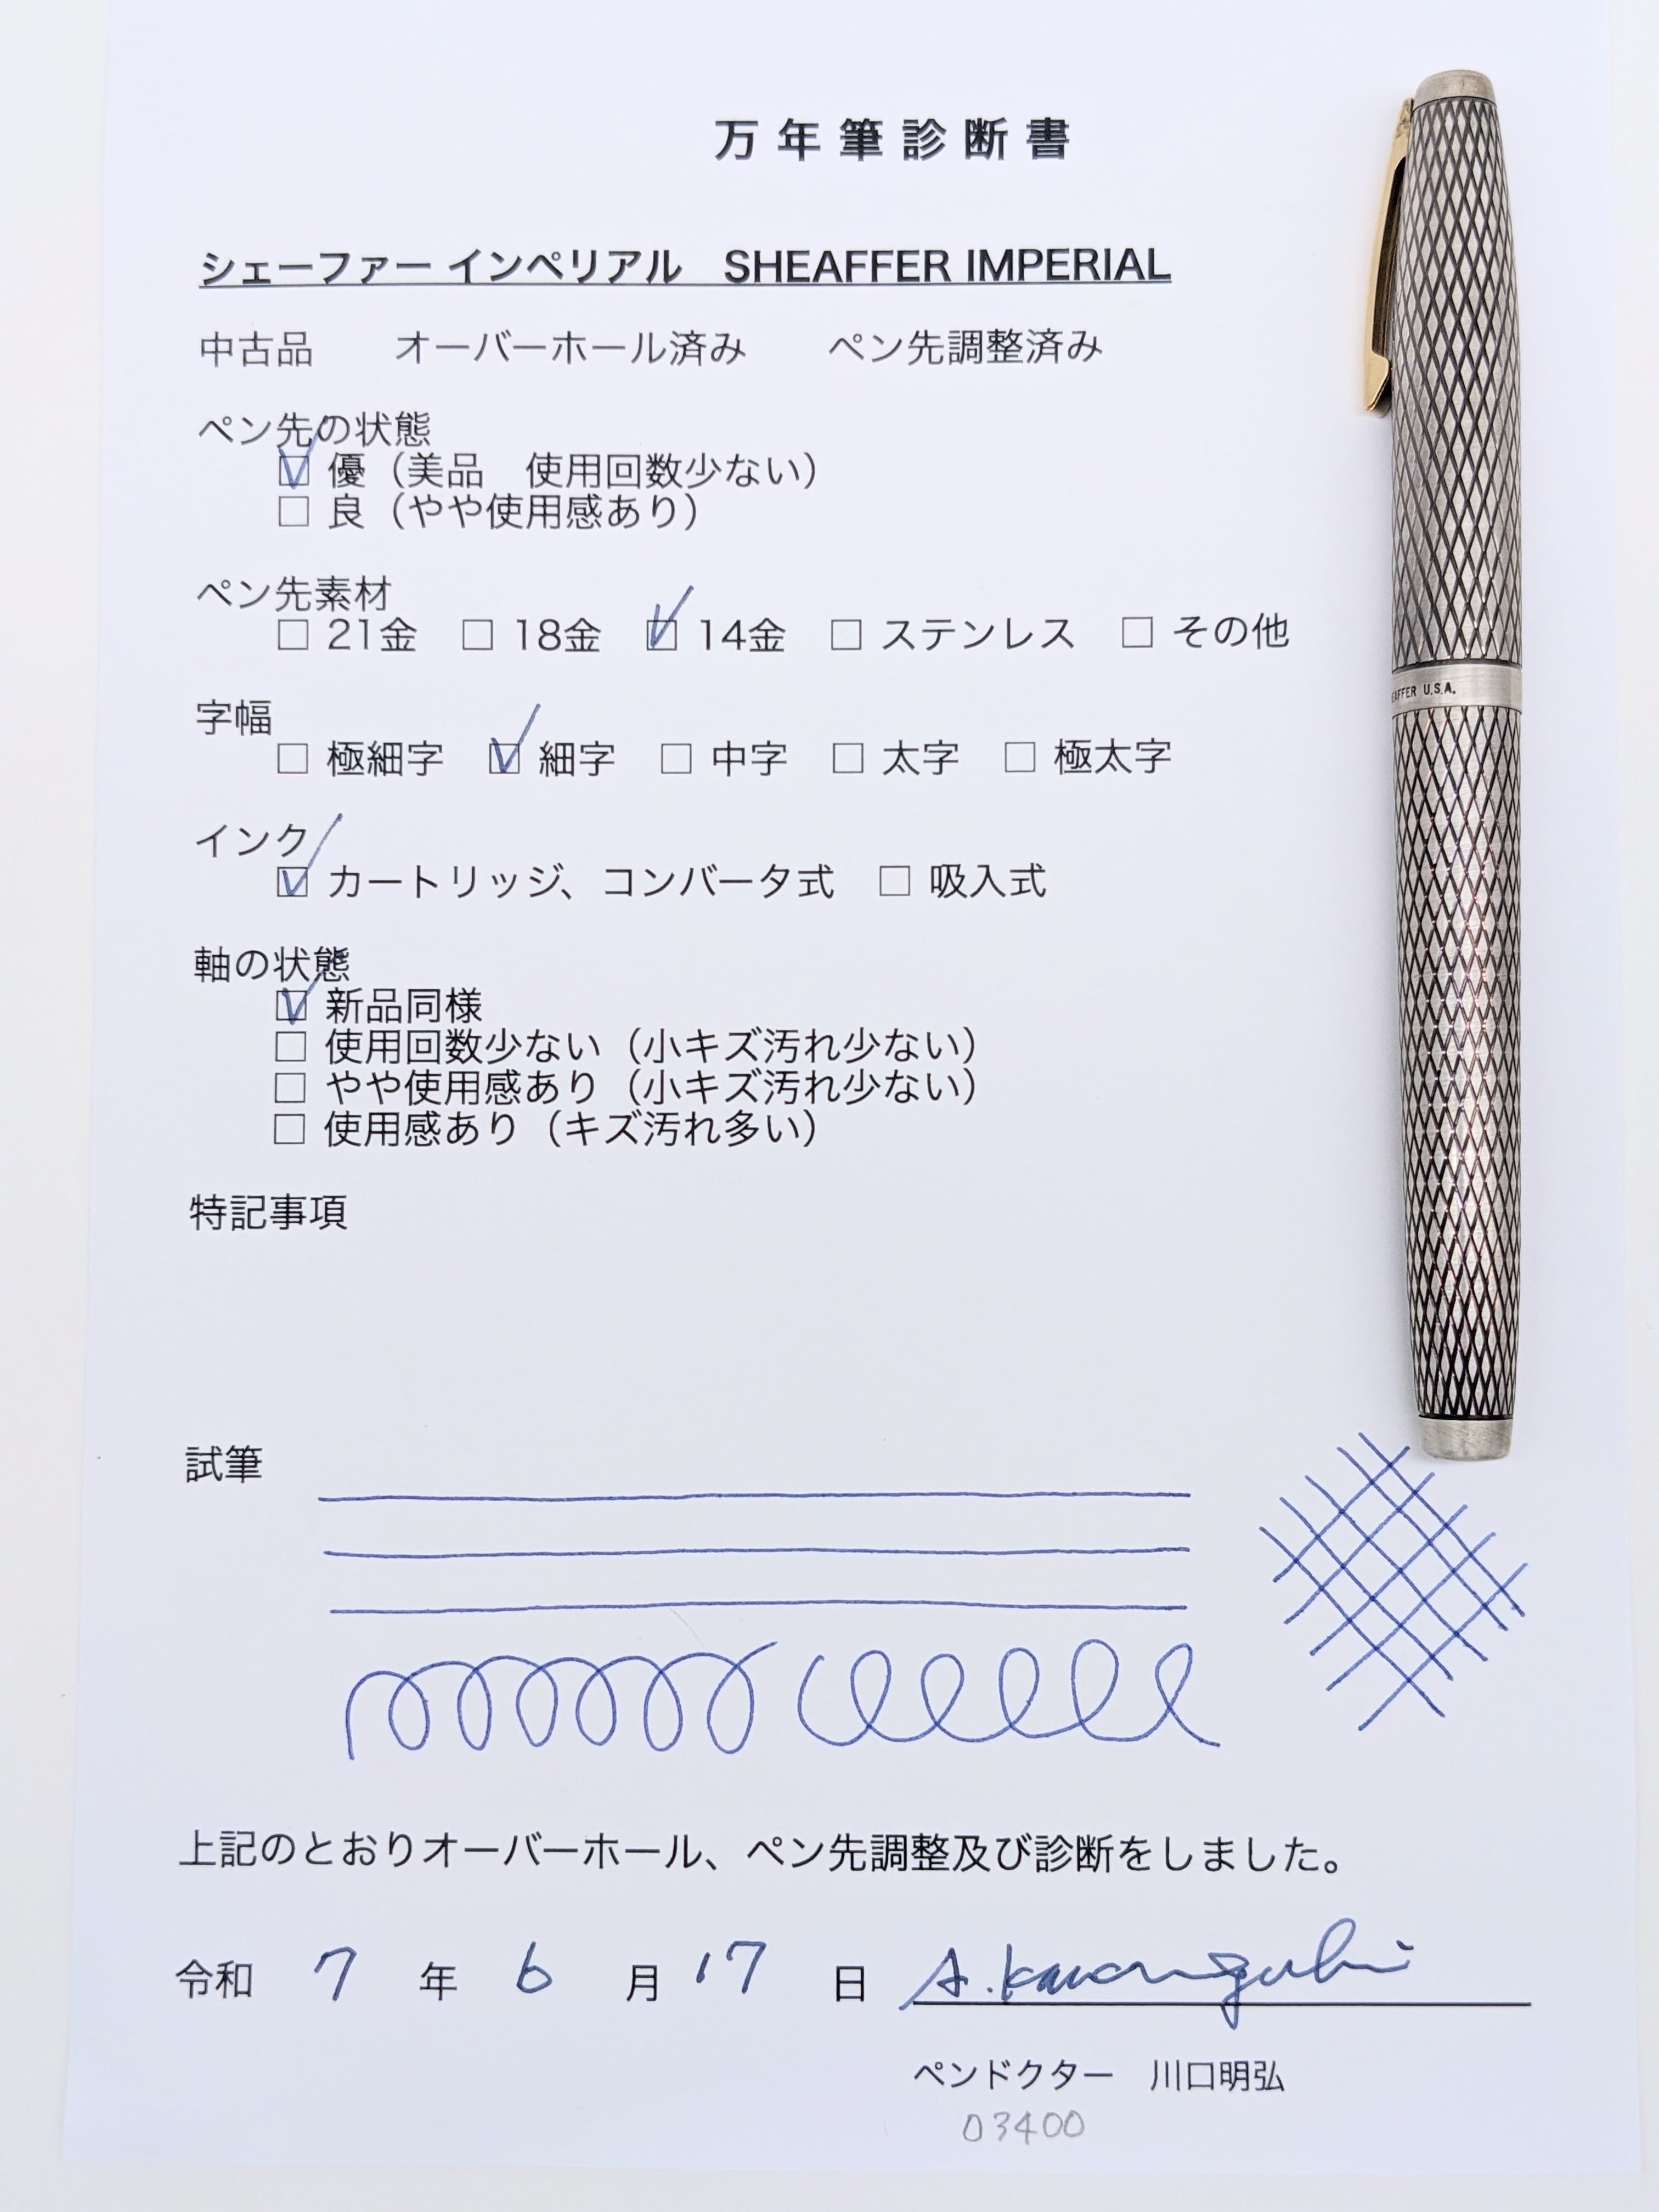 万年筆診断書
シェーファー インペリアル　SHEAFFER IMPERIAL
中古品　　オーバーホール済み　　ペン先調整済み
ペン先の状態
☑ 優（美品　使用回数少ない）
□ 良（やや使用感あり）
ペン先素材
□ 21金　□ 18金　☑ 14金　□ ステンレス　□ その他
字幅
□ 極細字　☑ 細字　□ 中字　□ 太字　□ 極太字
インク
☑ カートリッジ、コンバータ式　□ 吸入式
軸の状態
☑ 新品同様
□ 使用回数少ない（小キズ汚れ少ない）
□ やや使用感あり（小キズ汚れ少ない）
□ 使用感あり（キズ汚れ多い）
特記事項
試筆
上記のとおりオーバーホール、ペン先調整及び診断をしました。
令和 7 年 6 月 17 日 A. Kawaguchi
ペンドクター　川口明弘
03400
EAFFER U.S.A.